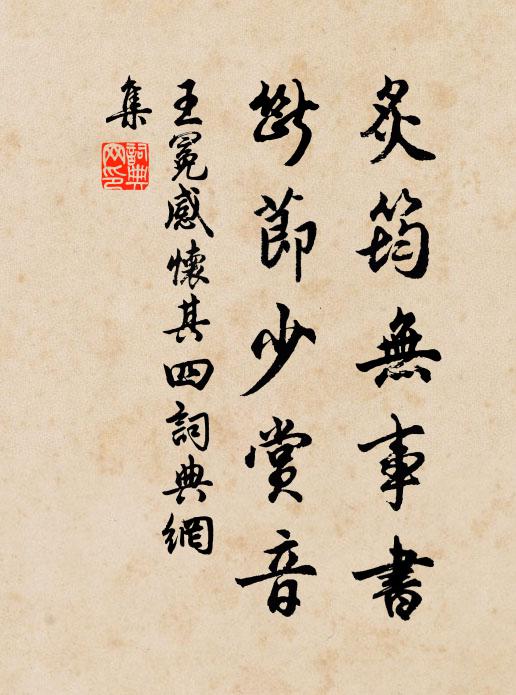 炙筠無事書
斷節少賞音
王冕感懷其四詞典網
集
詞典
网印